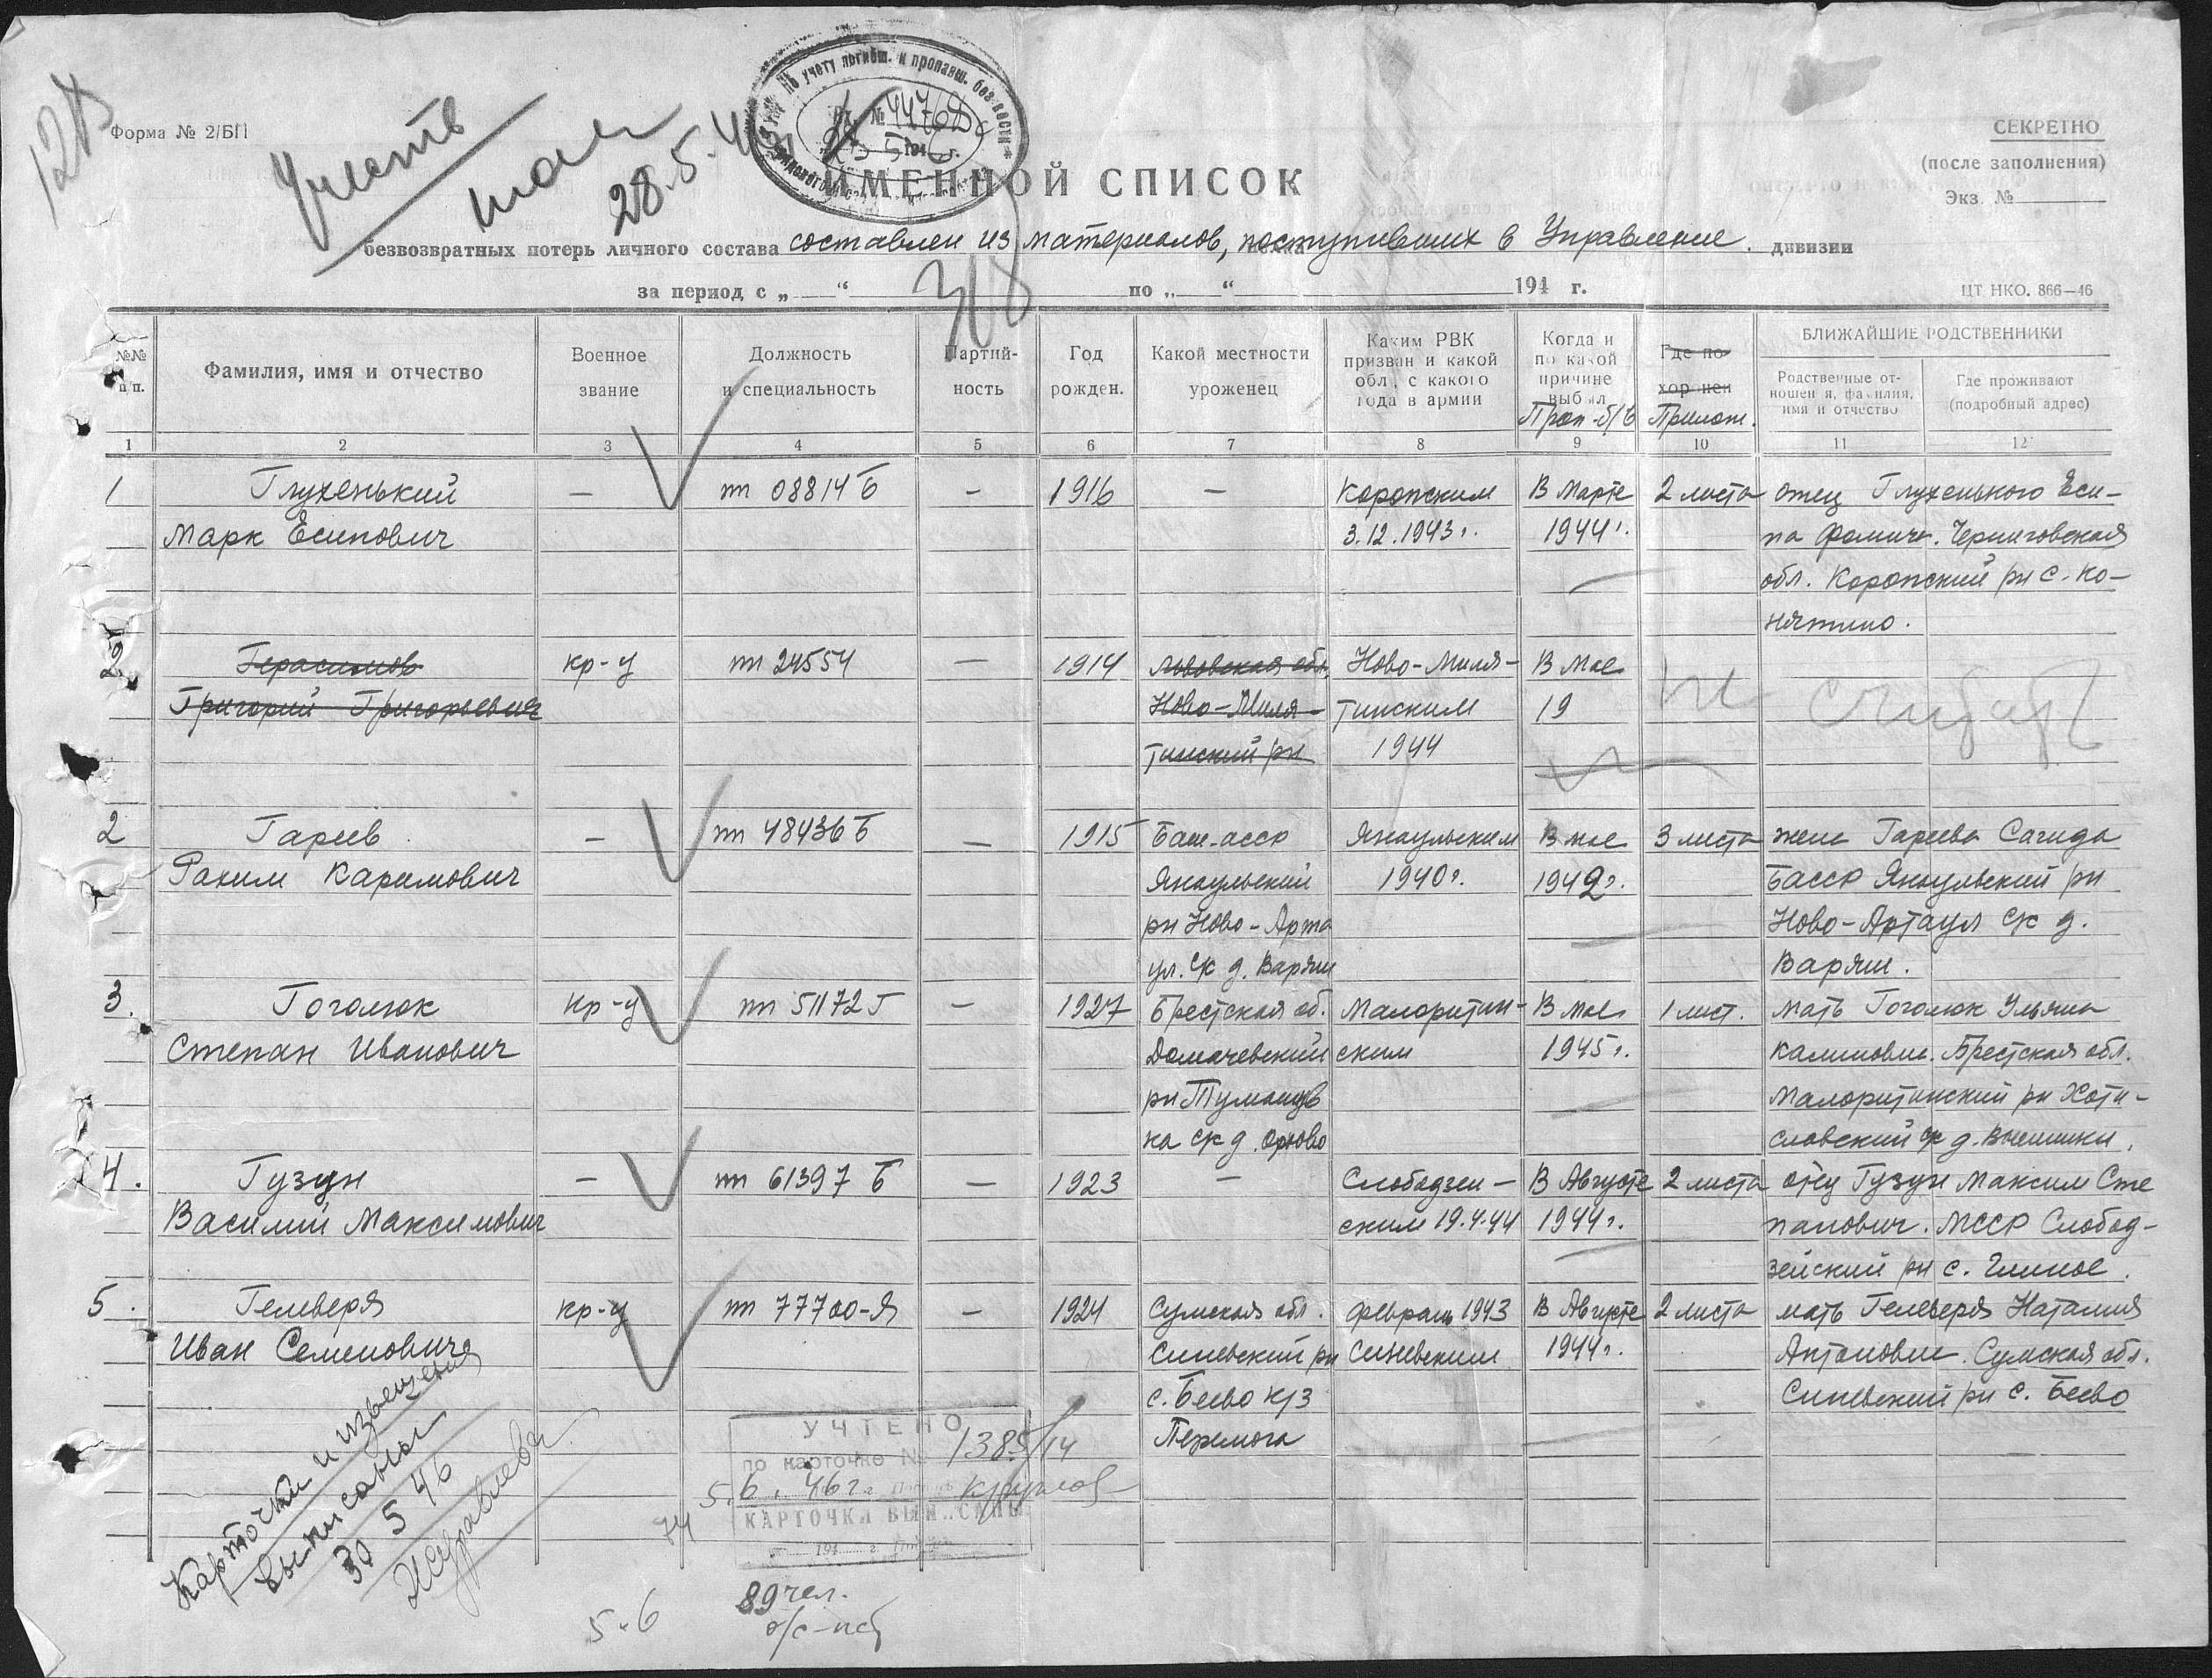 128
Форма № 2/БП
Учесть
28.5.46
по учету погибш. и пропавш. без вести
Вх. № 44768с
СЕКРЕТНО
(после заполнения)
Экз. №
ИМЕННОЙ СПИСОК
безвозвратных потерь личного состава составлен из материалов, поступивших в Управление. дивизии
за период с „ “ по „ “ 194 г.
ЦТ НКО. 866—46
№№ п/п.
Фамилия, имя и отчество
Военное звание
Должность и специальность
Партийность
Год рожден.
Какой местности уроженец
Каким РВК призван и какой обл., с какого года в армии
Когда и по какой причине выбыл
Проп-б/в
Где похоронен
Прилож.
БЛИЖАЙШИЕ РОДСТВЕННИКИ
Родственные отношения, фамилия, имя и отчество
Где проживают (подробный адрес)
1 2 3 4 5 6 7 8 9 10 11 12
1 Глухенький — пп 08814 Б — 1916 — Коропским В Марте 2 листа отец Глухенького Еси-
Марк Есипович 3.12.1943г. 1944г. па Фомич. Черниговская
обл. Коропский рн с. Ко-
нятино.
Герасимов кр-ц пп 24554 — 1914 Львовская обл. Ново-Миля- В Мае
Григорий Григорьевич Ново-Миля- тинским 19
тинский рн 1944
2 Гареев — пп 48436 Б — 1915 Баш-асср Янаульским В мае 3 листа жена Гареева Сагида
Рахим Каримович Янаульский 1940г. 1942г. БАССР Янаульский рн
рн Ново-Арта Ново-Артаул с/с д.
ул. с/с д. Варяш Варяш.
3. Гоголюк кр-ц пп 51172 Г — 1927 Брестская об. Малоритин- В Мае 1 лист. мать Гоголюк Ульяна
Степан Иванович Домачевский ским 1945г. Калиновна. Брестская обл.
рн Малоритинский рн Хоти-
ка с/с д. Орхово славский с/с д.
4. Гузун — пп 61397 Б — 1923 — Слободзей- В Августе 2 листа отец Гузун Максим Сте
Василий Максимович ским 19.4.44 1944г. панович. МССР Слобод-
зейский рн с. Глиное.
5. Гелеверя кр-ц пп 77700-Я — 1924 Сумская обл. февраль 1943 В Августе 2 листа мать Гелеверя Наталия
Иван Семенович Синевский рн Синевским 1944г. Антоновна. Сумская обл.
с. Беево к/з Синевский рн с. Беево
Перемога
Карточки и извещения
выписаны
30 5 46
Журавлева
УЧТЕНО
по карточке № 1385/14
5.6.46 г. Круглов
КАРТОЧКА ВЫПИСАНА
194 г.
74
5.6
89 чел.